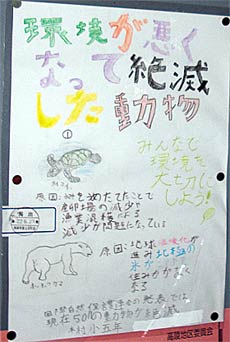 環境が悪く
なって絶滅
した動物
①
みんなで
環境を
大切に
しよう!
原因:
を埋めたてたことで
産卵場の減少や
漁業混獲による
減少が問題になっている
原因:地球温暖化が
進み北極の
氷が
住みかがなく
なる
ホッキョクグマ
国際自然保護連合の発表では
現在 動物が絶滅
木村小五年
高陵地区委員会